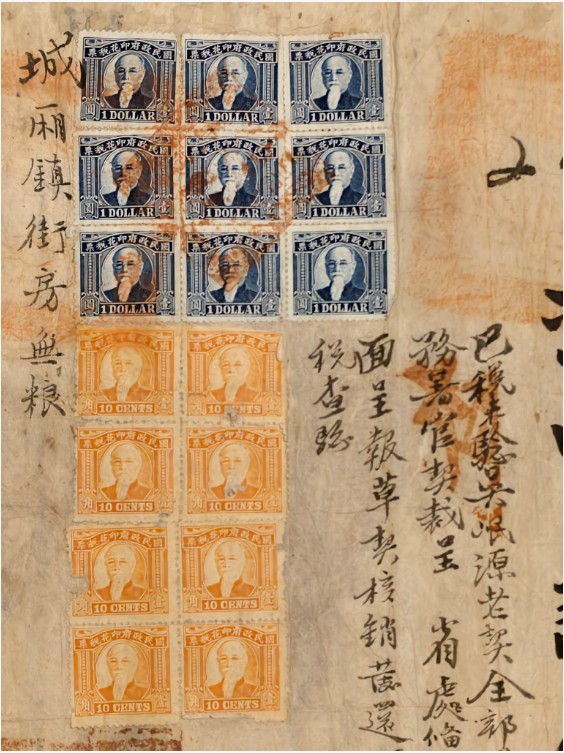 已稅未驗吳岷源老契全部
務署官契裁呈 省處備
面呈報草契核銷舊還
稅查驗
國民政府印花稅票
壹圓
1 DOLLAR
國民政府印花稅票
壹圓
1 DOLLAR
國民政府印花稅票
壹圓
1 DOLLAR
國民政府印花稅票
壹圓
1 DOLLAR
國民政府印花稅票
壹圓
1 DOLLAR
國民政府印花稅票
壹圓
1 DOLLAR
國民政府印花稅票
壹圓
1 DOLLAR
國民政府印花稅票
壹圓
1 DOLLAR
國民政府印花稅票
壹圓
1 DOLLAR
國民政府印花稅票
壹角
10 CENTS
國民政府印花稅票
壹角
10 CENTS
國民政府印花稅票
壹角
10 CENTS
國民政府印花稅票
壹角
10 CENTS
國民政府印花稅票
壹角
10 CENTS
國民政府印花稅票
壹角
10 CENTS
國民政府印花稅票
壹角
10 CENTS
國民政府印花稅票
壹角
10 CENTS
城廂鎮街房無粮